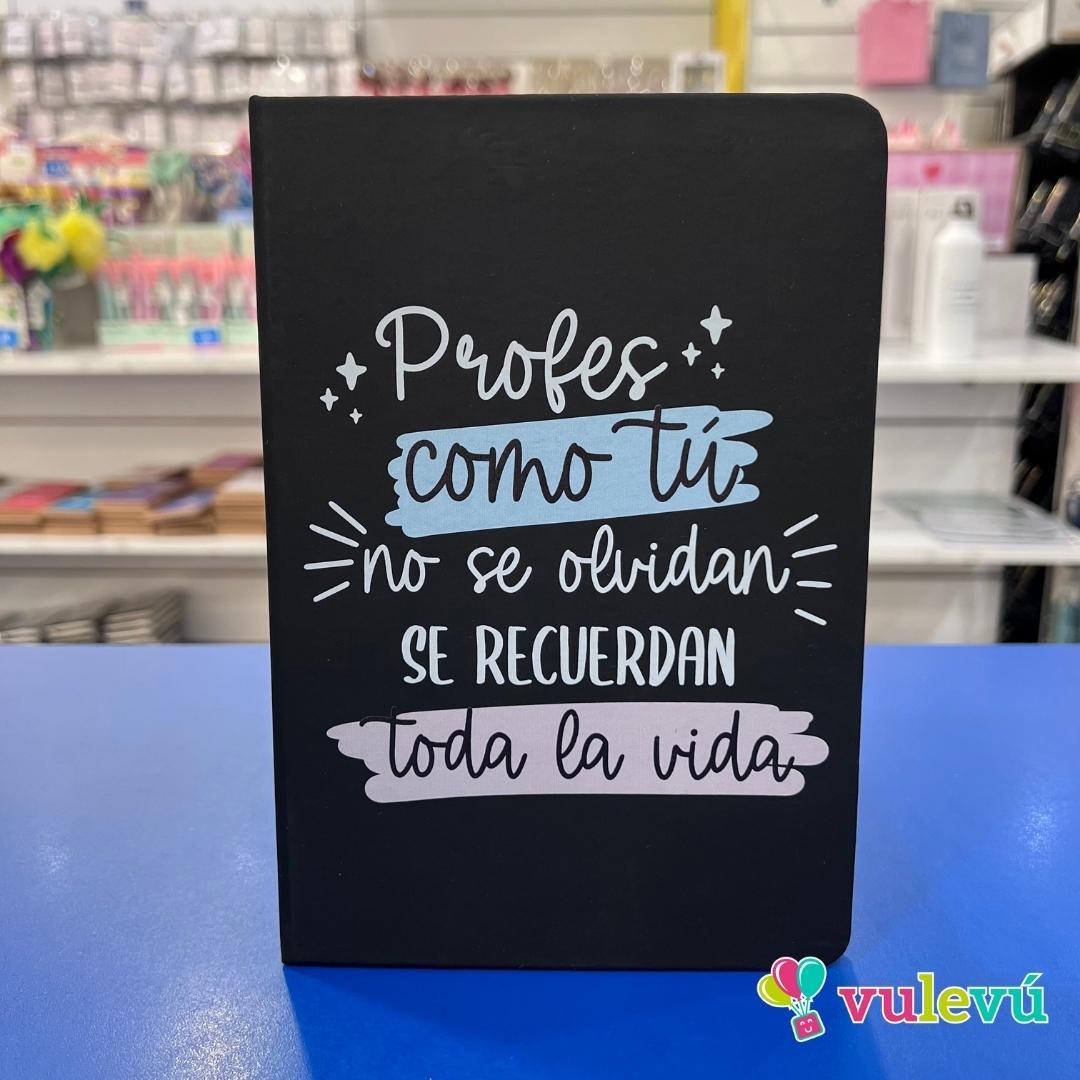 Profes
como tú
no se olvidan
SE RECUERDAN
toda la vida
vulevú